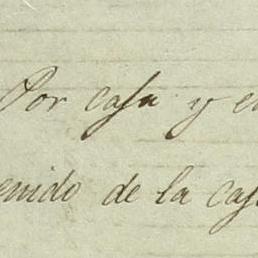 Por casa y en
enido de la casa